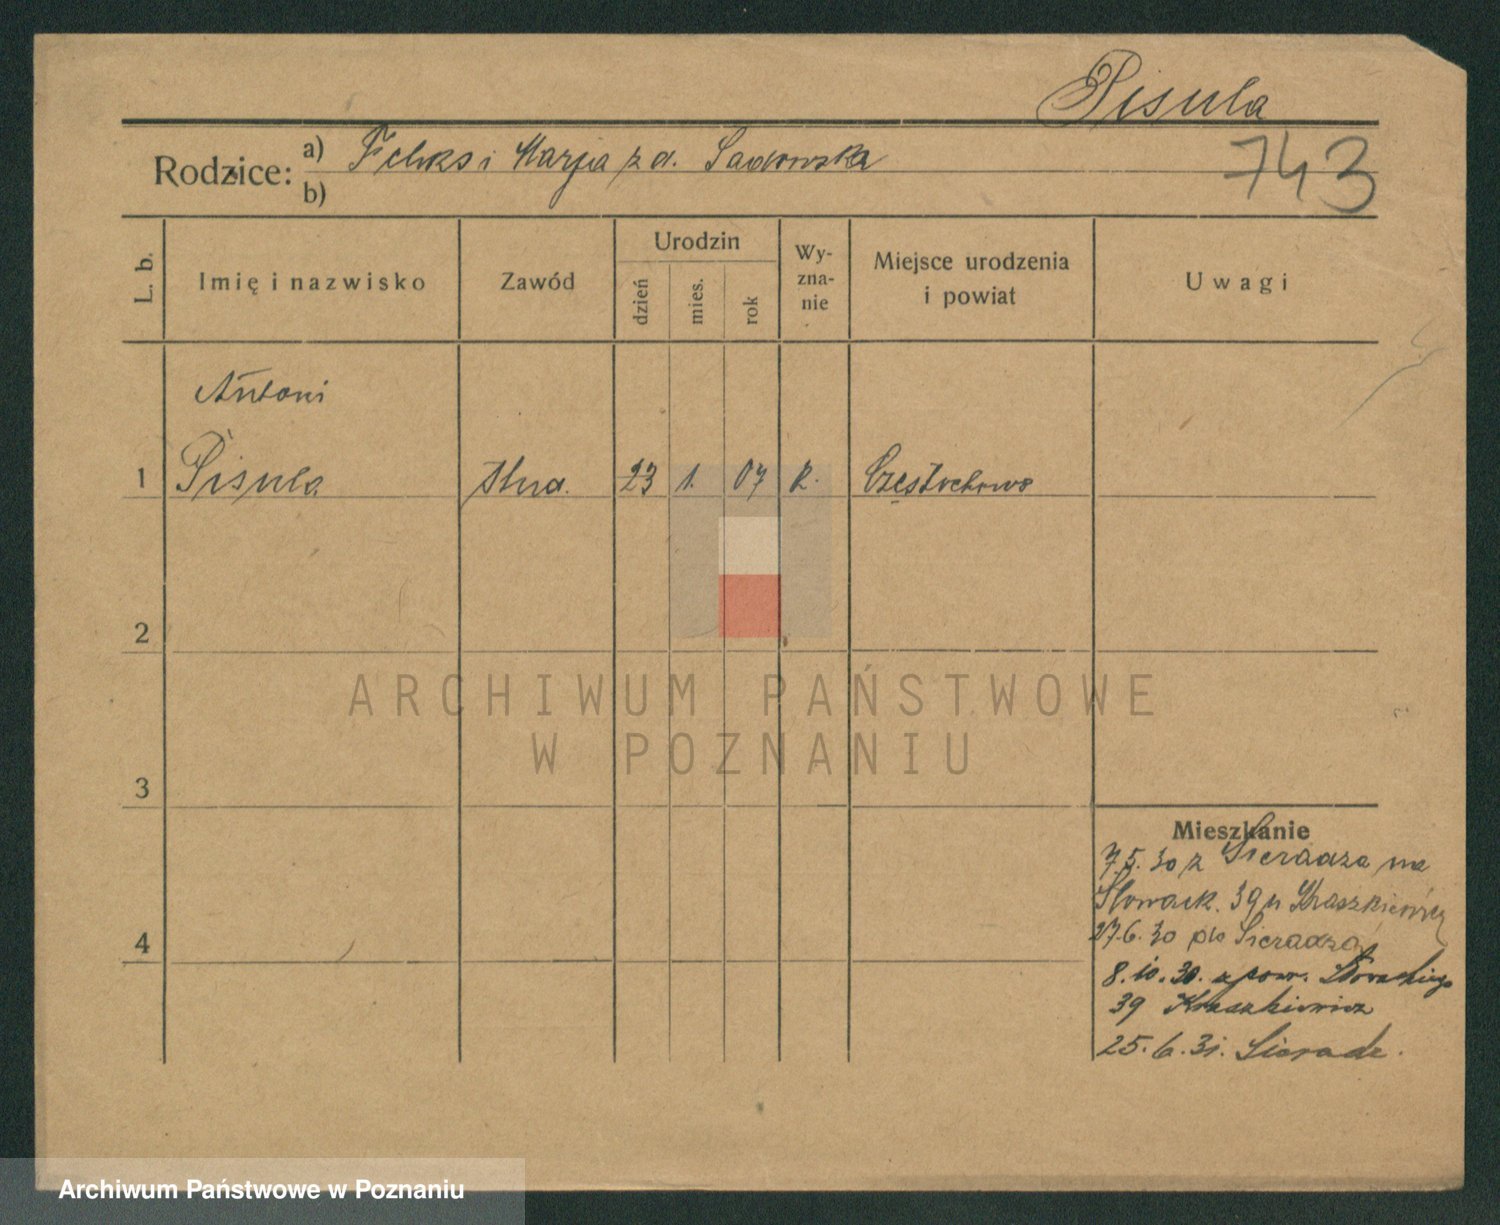 Pisula
Rodzice: a) Feliks i Marja z d. Sadowska
b)
743
L. b.
Imię i nazwisko
Zawód
Urodzin
dzień
mies.
rok
Wy-
zna-
nie
Miejsce urodzenia
i powiat
Uwagi
Antoni
1 Pisula 23 1. 07 R. Częstochowa
2
3
4
ARCHIWUM PAŃSTWOWE
W POZNANIU
Mieszkanie
7.5.30 z Sieradza na
Słowack. 39 u Kraszkiewicz
27.6.30 do Sieradza
8.10.30. z pow. Słowackiego
39 Kraszkiewicz
25.6.31. Sieradz.
Archiwum Państwowe w Poznaniu